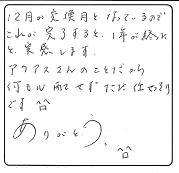 12月が交換月となっているので
これが完了すると、1年が終わる
と、実感します。
アクアスさんのことだから
何も心配せずただ任せきり
です ^^
ありがとう。
^^